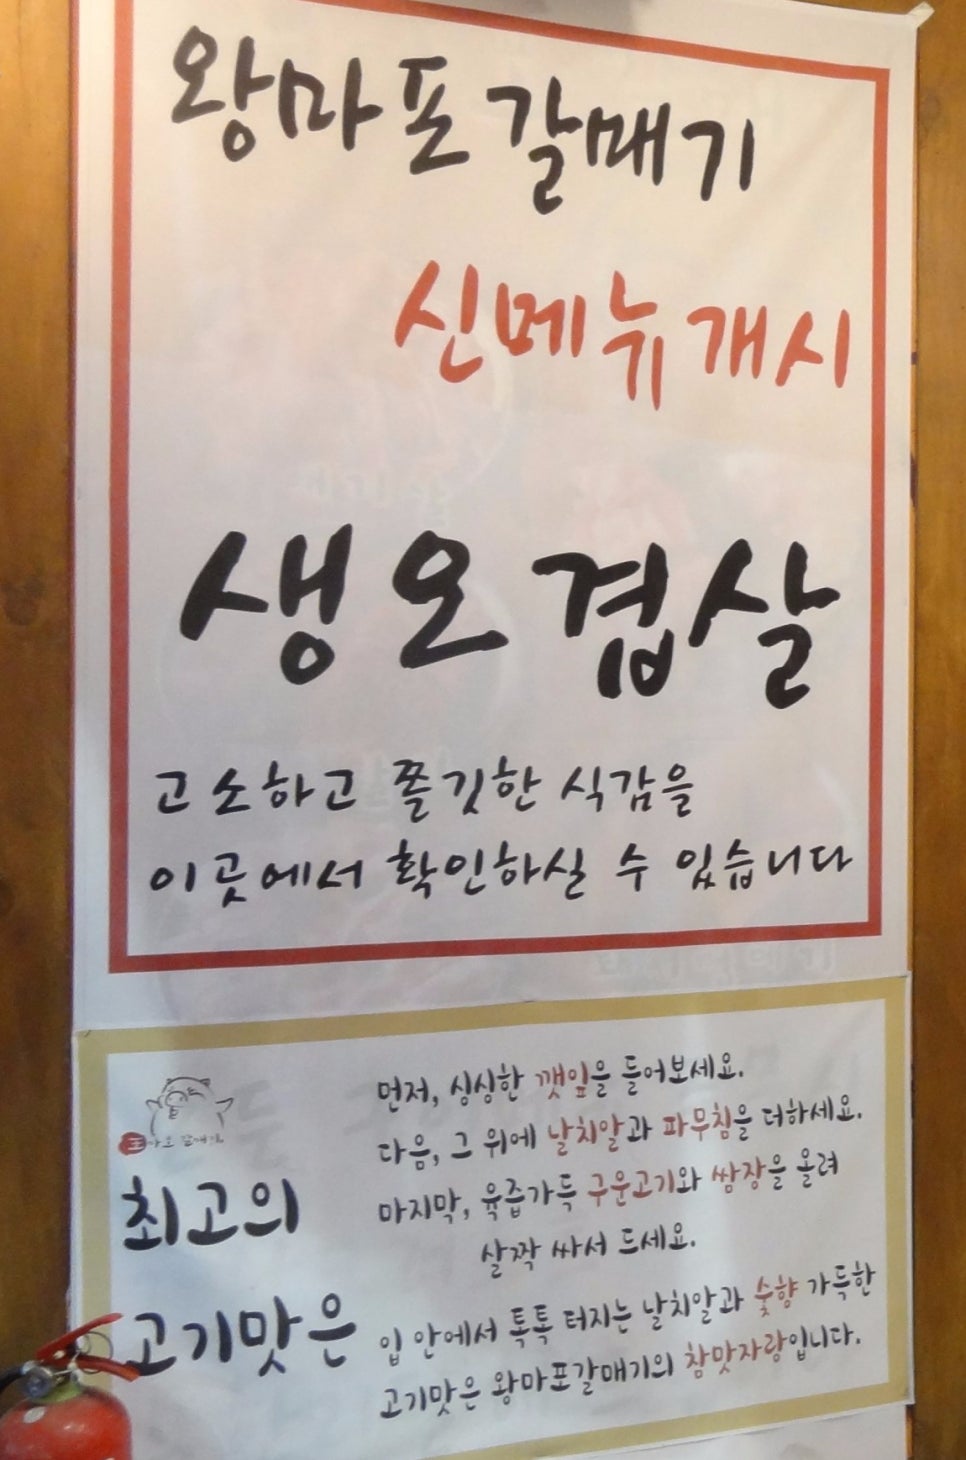 왕마포갈매기
신메뉴개시
생오겹살
고소하고 쫄깃한 식감을
이곳에서 확인하실 수 있습니다
최고의
고기맛은
먼저, 싱싱한 깻잎을 들어보세요.
다음, 그 위에 날치알과 파무침을 더하세요.
마지막, 육즙가득 구운고기와 쌈장을 올려
살짝 싸서 드세요.
입 안에서 톡톡 터지는 날치알과 숯향 가득한
고기맛은 왕마포갈매기의 참맛자랑입니다.